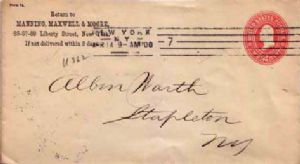 Return to
MANNING, MAXWELL & MOORE,
85-87-89 Liberty Street, New York,
If not delivered within 5 days.
NEW YORK
N.Y.
14 9-AM '00
7
Albin Warth
Stapleton
NY